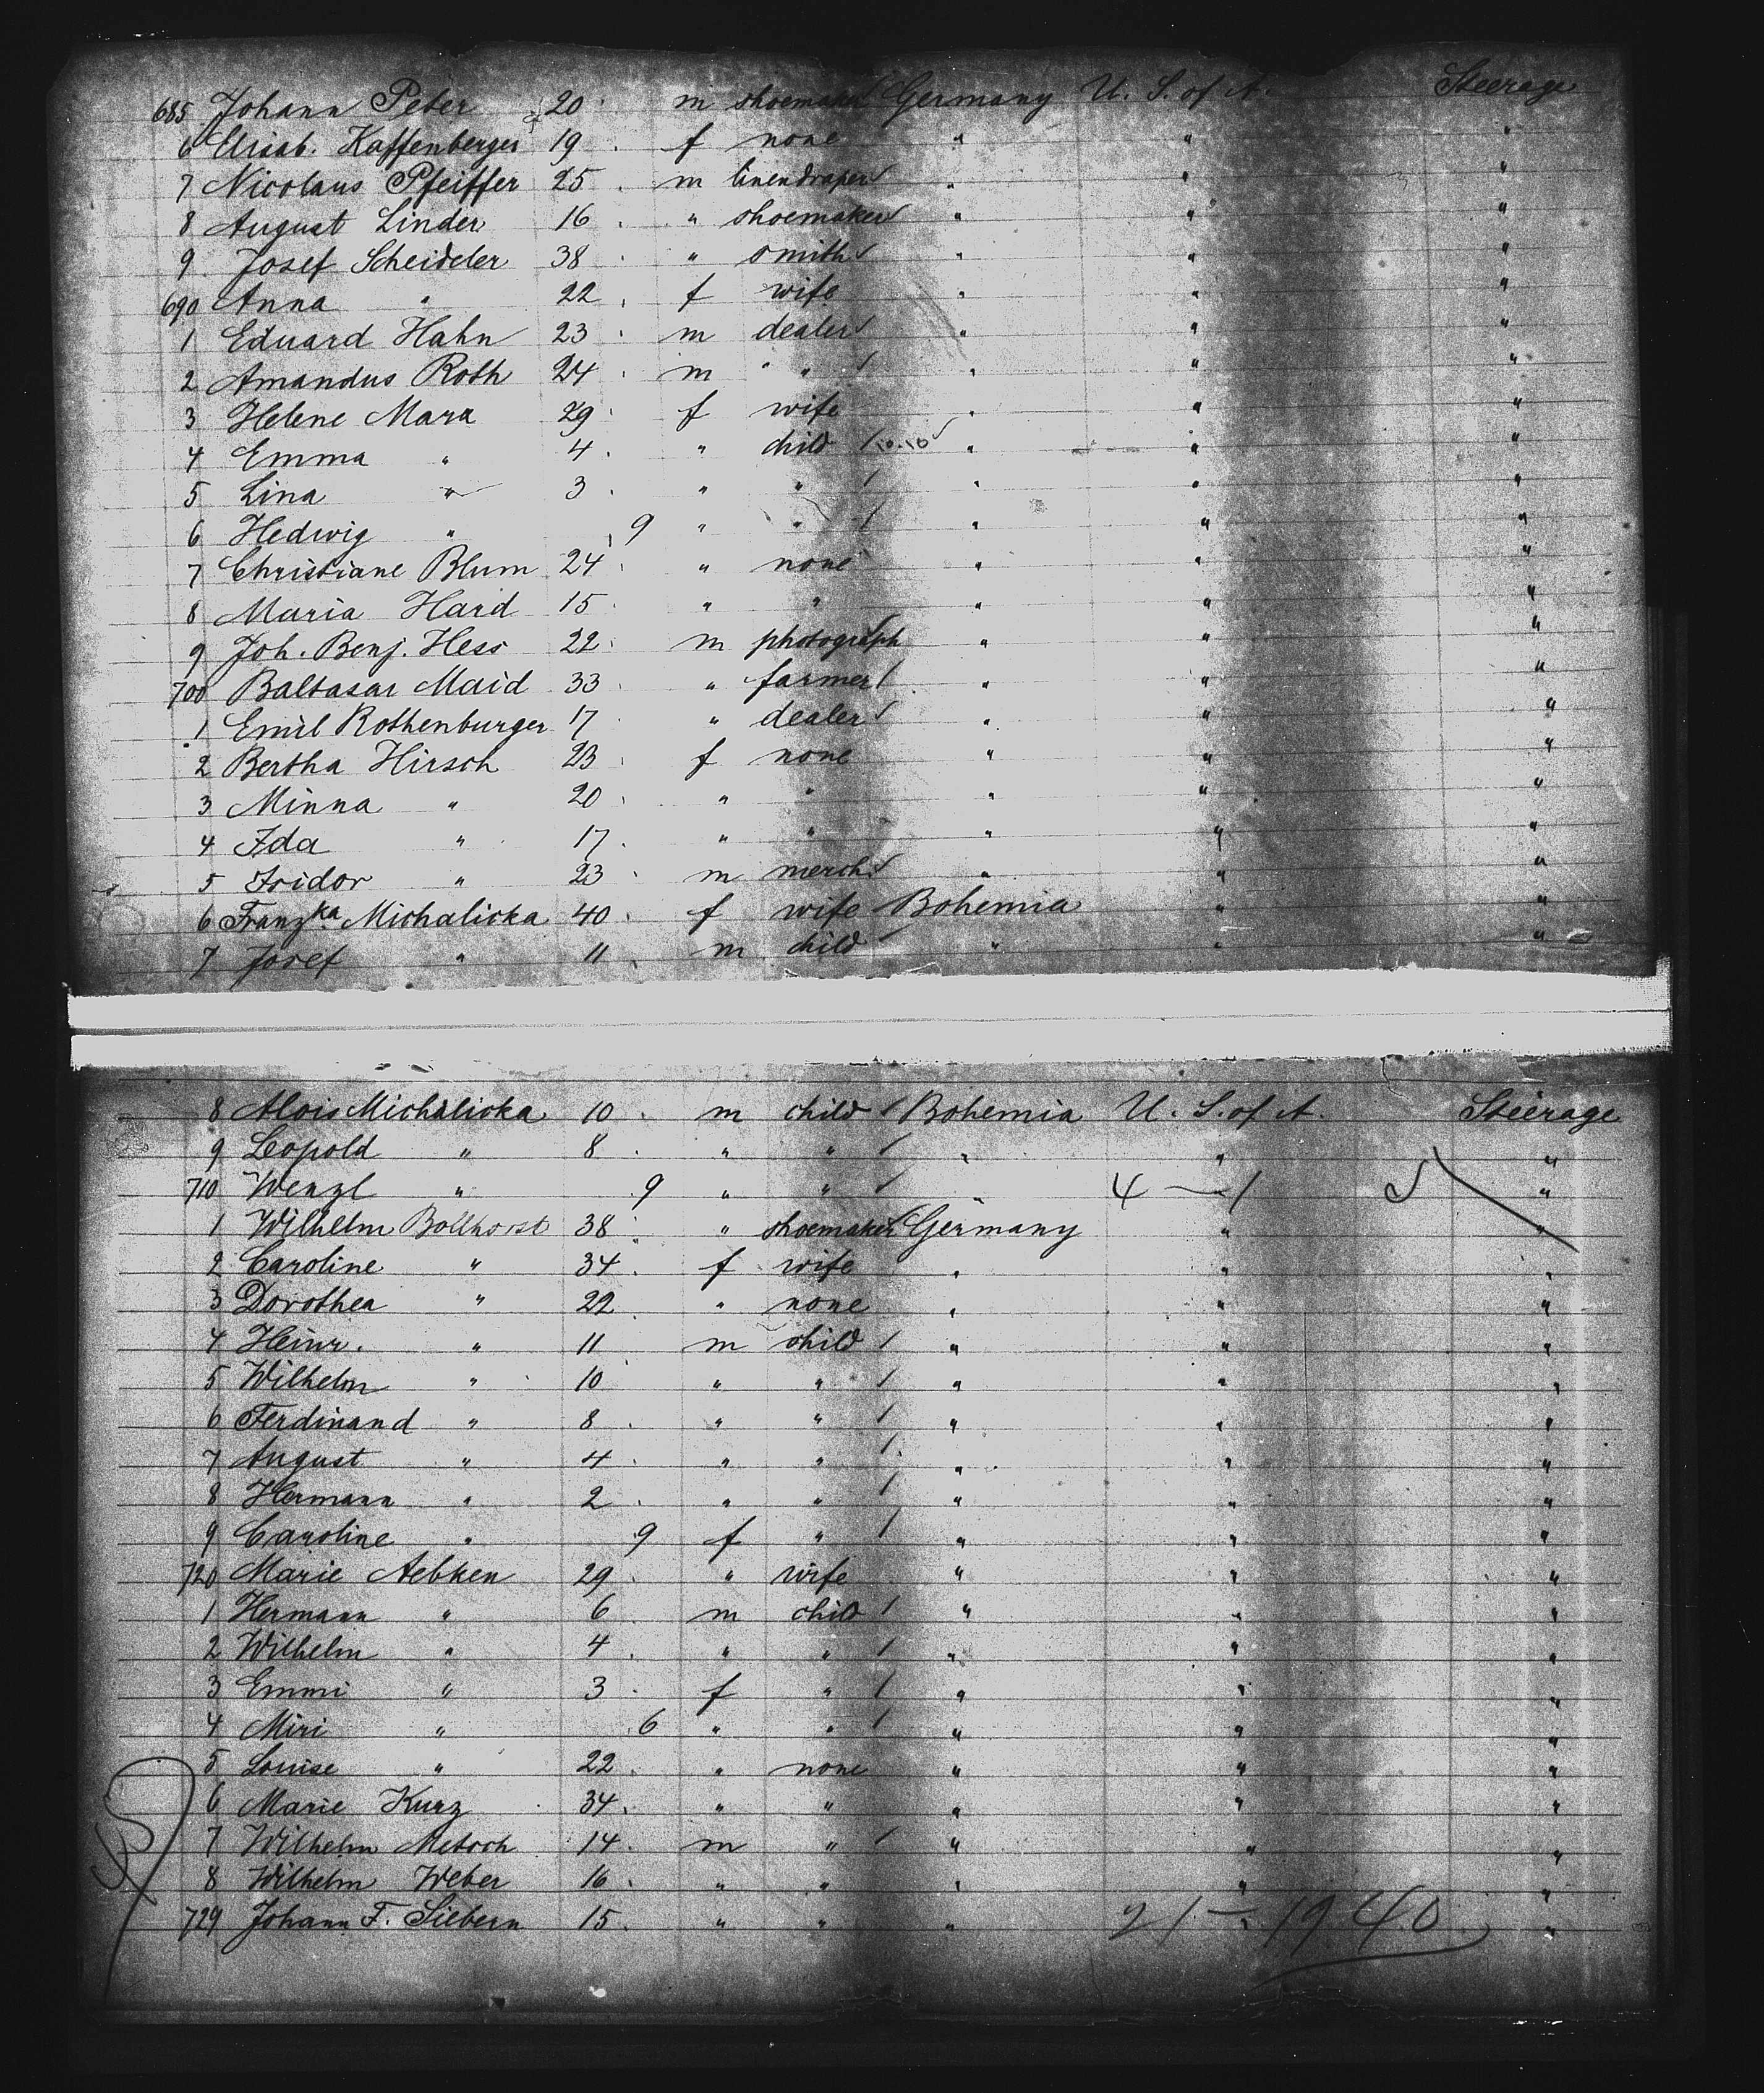 685 Johann Peter 20 m shoemaker Germany U. S. of A. Steerage
6 Elisab. Kaffenberger 19 f none " " "
7 Nicolaus Pfeiffer 25 m linendraper " " "
8 August Linder 16 " shoemaker " " "
9 Josef Scheideler 38 " smith " " "
690 Anna " 22 f wife " " "
1 Eduard Hahn 23 m dealer " " "
2 Amandus Roth 24 m " " " "
3 Helene Marx 29 f wife " " "
4 Emma " 4 " child " " "
5 Lina " 3 " " " " "
6 Hedwig " 9 " " " " "
7 Christiane Blum 24 " none " " "
8 Maria Hard 15 " " " " "
9 Joh. Benj. Hess 22 m photograph " " "
700 Baltasar Maid 33 " farmer " " "
1 Emil Rothenburger 17 " dealer " " "
2 Bertha Hirsch 23 f none " " "
3 Minna " 20 " " " " "
4 Ida " 17 " " " " "
5 Isidor " 23 m merch. " " "
6 Franzka Michalicka 40 f wife Bohemia " "
7 Josef " 11 m child " " "
8 Alois Michalicka 10 m child Bohemia U. S. of A. Steerage
9 Leopold " 8 " " " " "
710 Wenzl " 9 " " " 4 — / "
1 Wilhelm Bollhorst 38 " shoemaker Germany " "
2 Caroline " 34 f wife " " "
3 Dorothea " 22 " none " " "
4 Heinr. " 11 m child " " "
5 Wilhelm " 10 " " " " "
6 Ferdinand " 8 " " " " "
7 August " 4 " " " " "
8 Hermann " 2 " " " " "
9 Caroline " 9 f " " " "
720 Marie Aebken 29 " wife " " "
1 Hermann " 6 m child " " "
2 Wilhelm " 4 " " " " "
3 Emmi " 3 f " " " "
4 Miri " 6 " " " " "
5 Louise " 22 " none " " "
6 Marie Kurz 34 " " " " "
7 Wilhelm Metsch 14 m " " " "
8 Wilhelm Weber 16 " " " " "
729 Johann F. Siebern 15 " " " " "
21 — 19 40